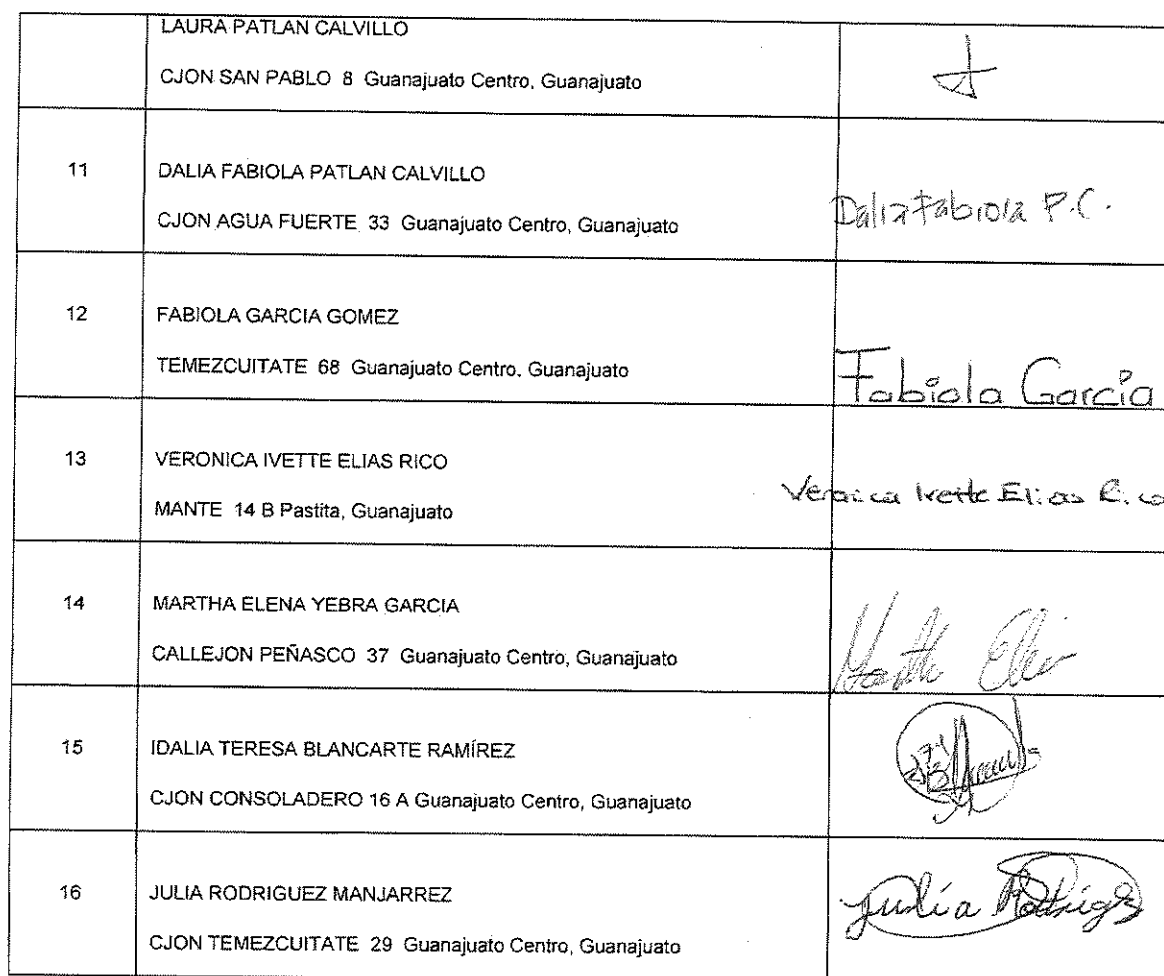 LAURA PATLAN CALVILLO
CJON SAN PABLO 8 Guanajuato Centro, Guanajuato
11
DALIA FABIOLA PATLAN CALVILLO
CJON AGUA FUERTE 33 Guanajuato Centro, Guanajuato
Dalia Fabiola P.C.
12
FABIOLA GARCIA GOMEZ
TEMEZCUITATE 68 Guanajuato Centro, Guanajuato
Fabiola García
13
VERONICA IVETTE ELIAS RICO
MANTE 14 B Pastita, Guanajuato
Veronica Ivette Elias Rico
14
MARTHA ELENA YEBRA GARCIA
CALLEJON PEÑASCO 37 Guanajuato Centro, Guanajuato
15
IDALIA TERESA BLANCARTE RAMÍREZ
CJON CONSOLADERO 16 A Guanajuato Centro, Guanajuato
16
JULIA RODRIGUEZ MANJARREZ
CJON TEMEZCUITATE 29 Guanajuato Centro, Guanajuato
Julia